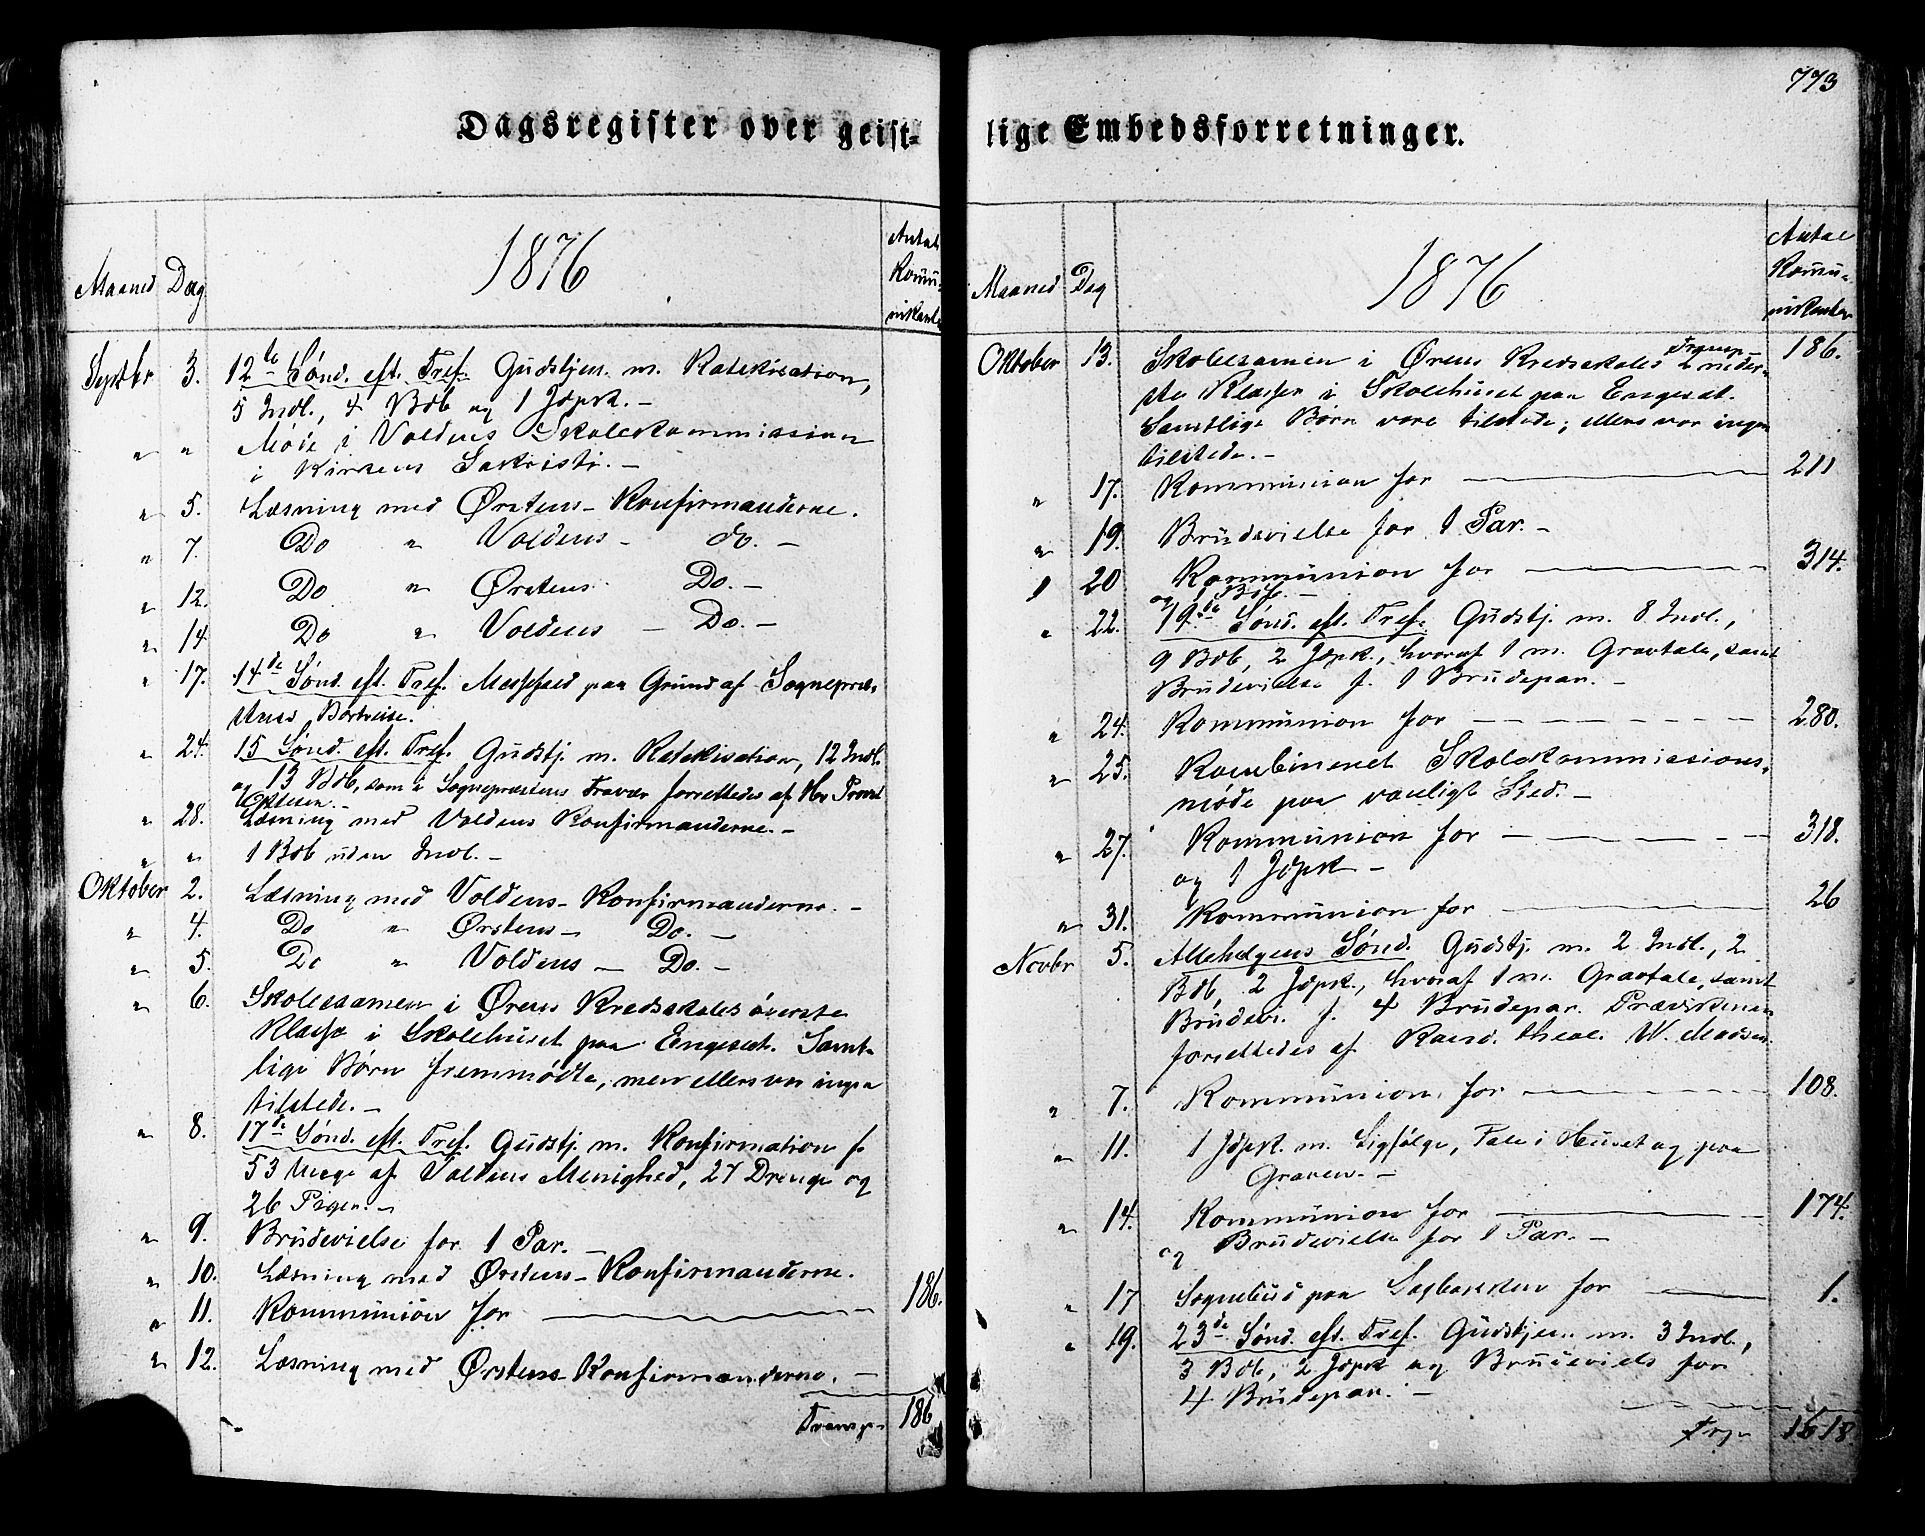 773
Dagsregister over geist-
lige Embedsforretninger.
Maaned Dag 1876 Antal Kommu- nikanter
Septbr 3. 12te Sønd. eft. Tref. Gudstjen. m. Katekisation,
5 Indl., 4 Bdb og 1 Jdpk. -
" " Møde i Voldens Skolekommission
i Kirkens Sakristi. -
" 5. Læsning med Ørstens - Konfirmanderne.
" 7. Do " Voldens - do. -
" 12. Do " Ørstens Do. -
" 14 Do " Voldens - Do. -
" 17. 14de Sønd. eft. Tref. Messefald paa Grund af Sognepræ-
stens Bortreise.
" 24. 15 Sønd. eft. Tref. Gudstj. m. Katekisation, 12 Indl.
og 13 Bdb, som i Sognepræstens Fravær forrettedes af Hr Provst
" 28. Læsning med Voldens Konfirmanderne. -
" " 1 Bdb uden Indl. -
Oktober 2. Læsning med Voldens - Konfirmanderne. -
" 4. Do " Ørstens - Do. -
" 5. Do " Voldens - Do. -
" 6. Skolexamen i Ørens Kredsskoles øverste
Klasse i Skolehuset paa Engeset. Samt-
lige Børn fremmødte, men ellers var ingen
tilstede. -
" 8. 17de Sønd. eft. Tref. Gudstj. m. Konfirmation f.
53 Unge af Voldens Menighed, 27 Drenge og
26 Piger. -
" 9. Brudevielse for 1 Par. -
" 10. Læsning med Ørstens - Konfirmanderne.
" 11. Kommunion for 186.
" 12. Læsning med Ørstens - Konfirmanderne. -
Transp. 186
Maaned Dag 1876 Antal Kommu- nikanter
Transp. 186.
Oktober 13. Skolexamen i Ørens Kredsskoles 2 neder-
ste Klasser i Skolehuset paa Engeset.
Samtlige Børn vare tilstede; ellers var ingen
tilstede. -
" 17. Kommunion for 211
" 19. Brudevielse for 1 Par. -
" 20 Kommunion for 314.
og 1 Bdb. -
" 22. 19de Sønd. eft. Tref. Gudstj. m. 8 Indl.,
9 Bdb, 2 Jdpk., hvoraf 1 m. Gravtale, samt
Brudevielse f. 1 Brudepar. -
" 24. Kommunion for 280.
" 25. Kombineret Skolekommissions-
møde paa vanligt Sted. -
" 27. Kommunion for 318.
og 1 Jdpk -
" 31. Kommunion for 26
Novbr 5. Allehelgens Sønd. Gudstj. m. 2 Indl., 2
Bdb, 2 Jdpk., hvoraf 1 m. Gravtale, samt
Brudevi. f. 4 Brudepar. Prædikenen
forrettedes af Kand. theol. W. Madsen.
" 7. Kommunion for 108.
" 11. 1 Jdpk. m. Ligfølge, Tale i Huset og paa
Graven. -
" 14. Kommunion for 174.
og Brudevielse for 1 Par. -
" 17 Sognebud paa for 1.
" 19. 23de Sønd. eft. Tref. Gudstjen. m. 3 Indl.,
3 Bdb, 2 Jdpk og Brudeviels for
4 Brudepar. -
Trp. 1618